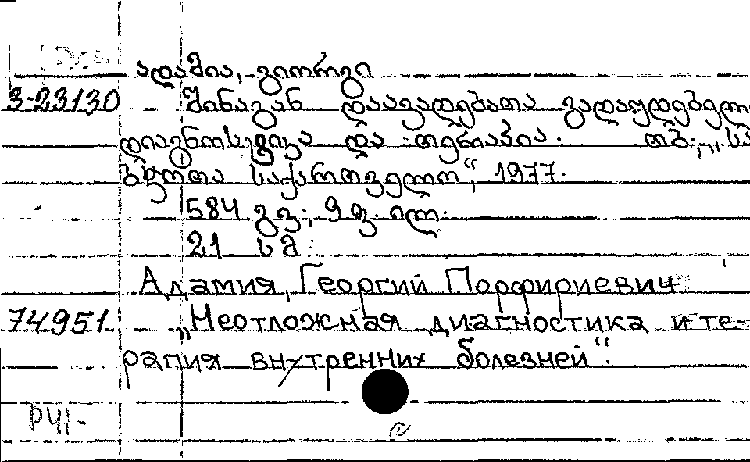 ადამია, გიორგი
3-23130 შინაგან დაავადებათა გადაუდებელი
დიაგნოსტიკა და თერაპია. თბ., „სა
ბჭოთა საქართველო“, 1977.
584 გვ; 9 ფ. ილ.
21 სმ.
Адамия, Георгий Порфириевич
74951 „Неотложная диагностика и те-
рапия внутренних болезней“.
РЧ1-